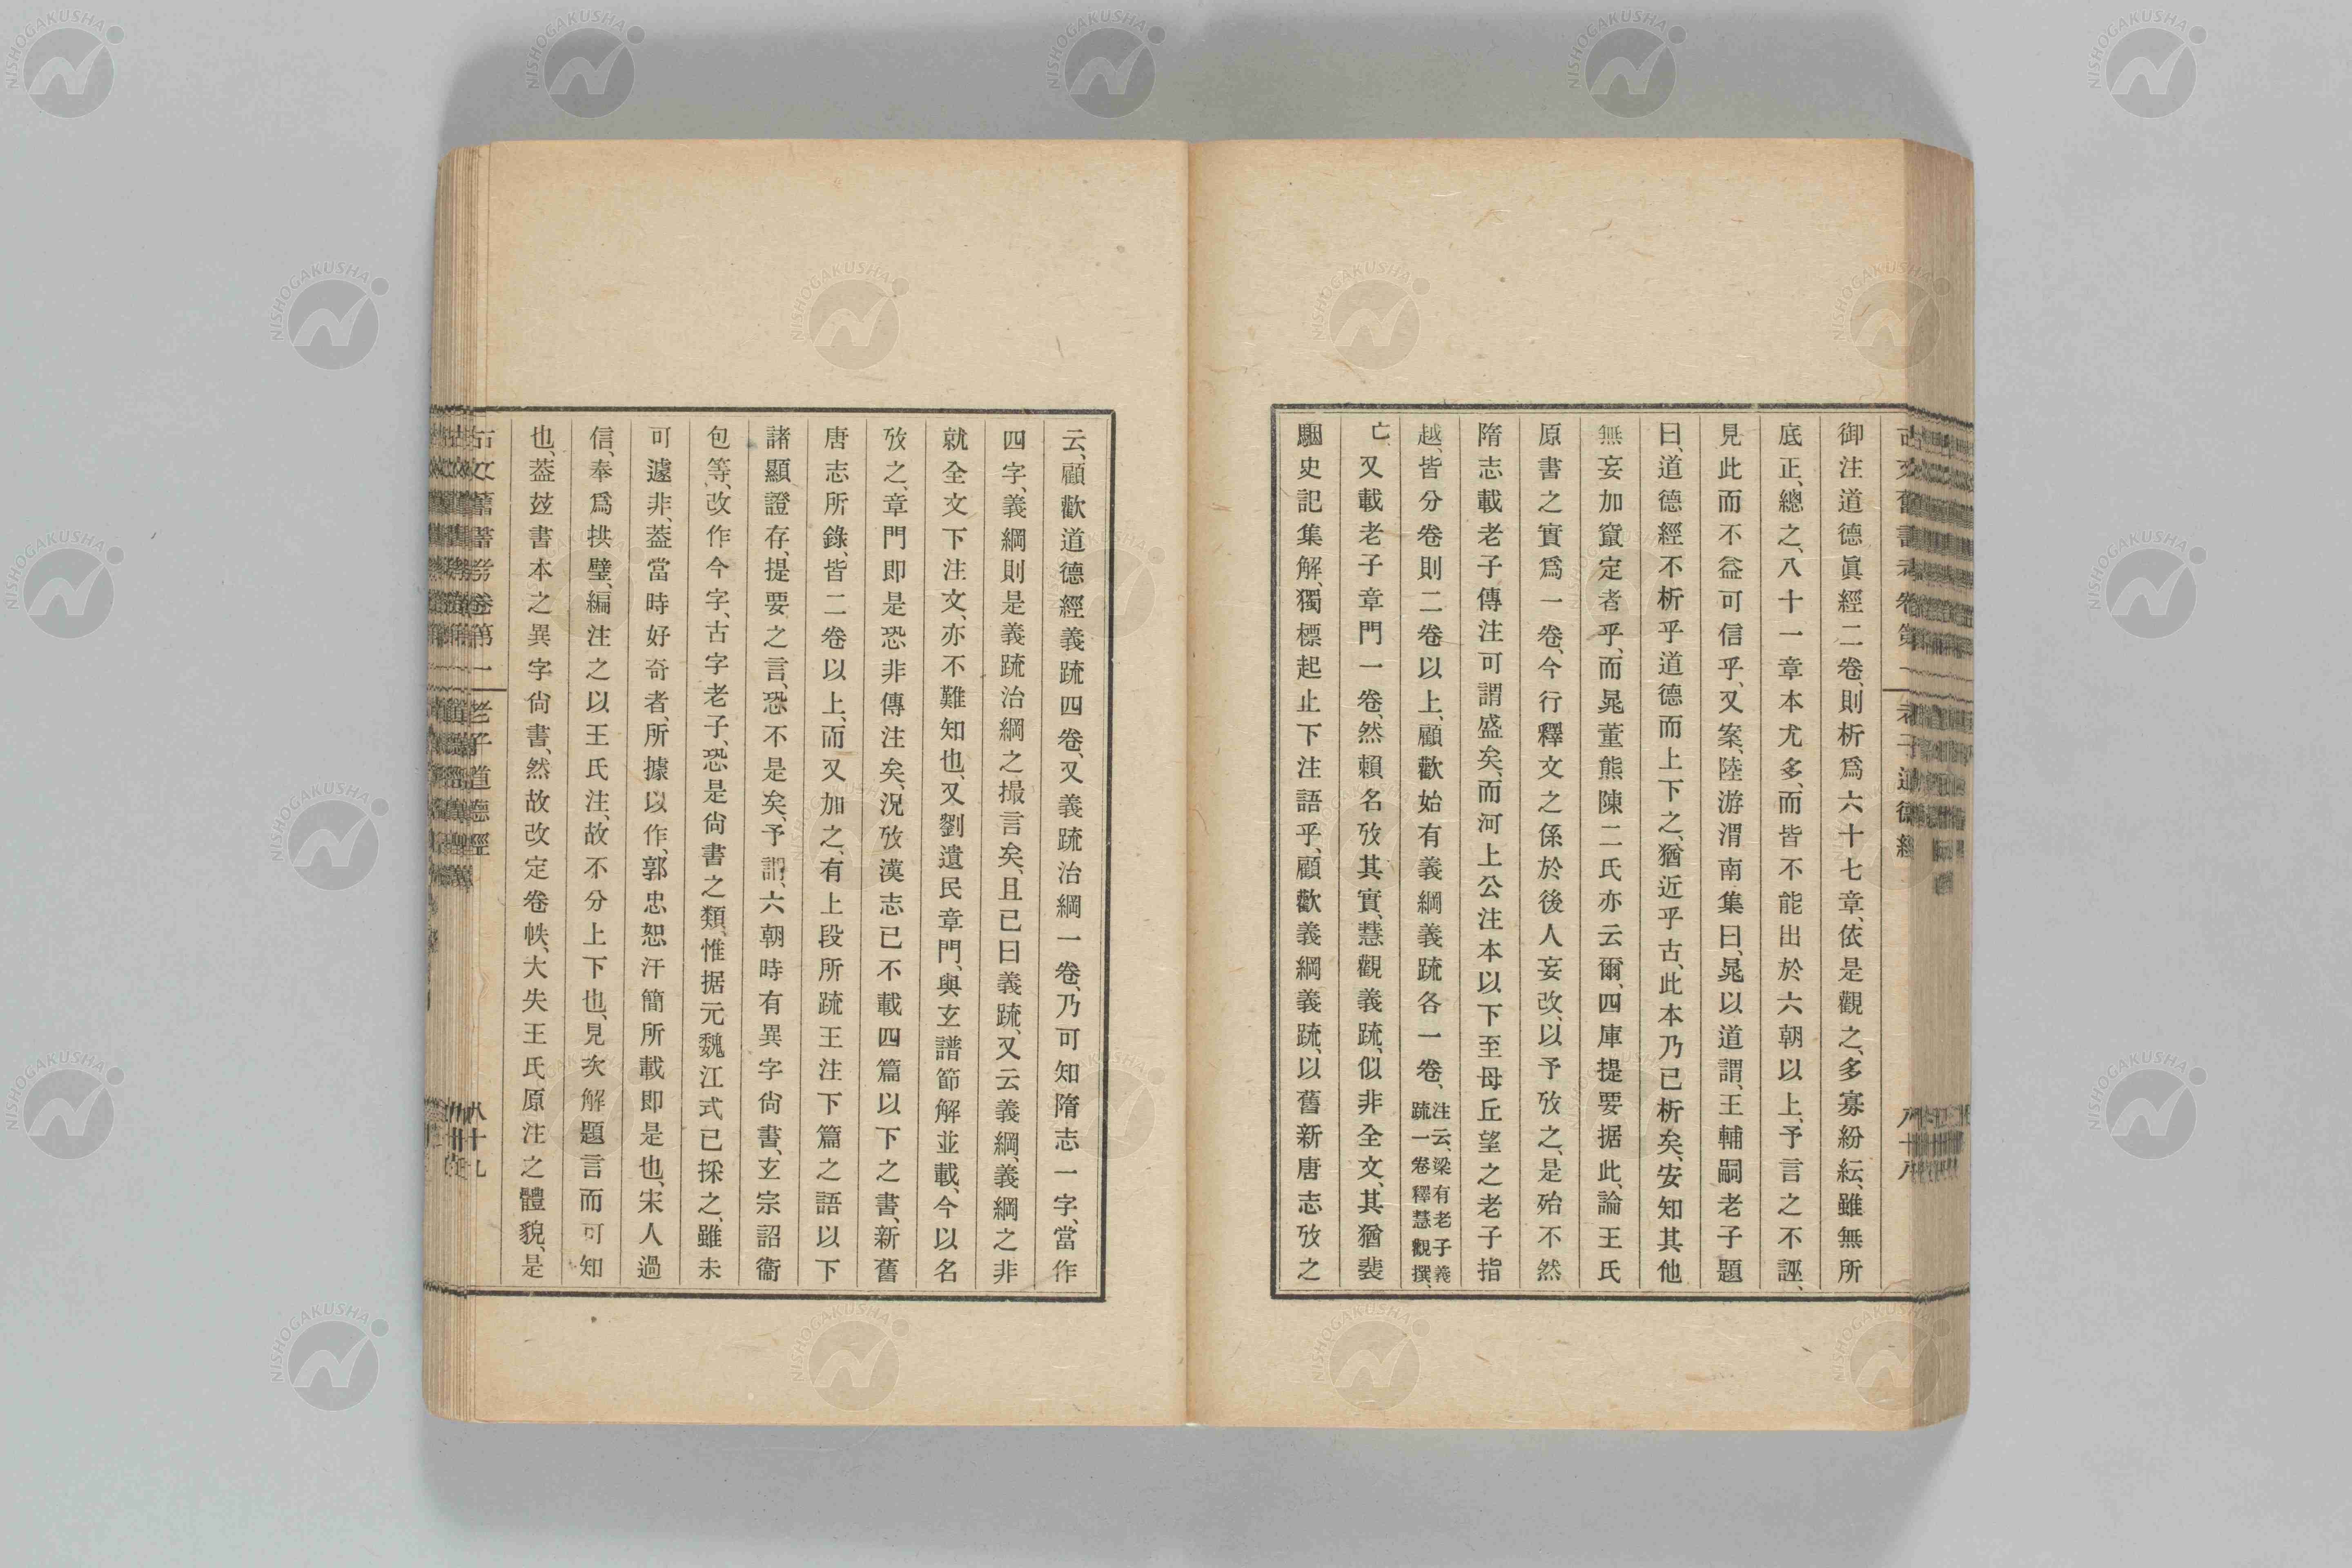 御注道德眞經二卷、則析爲六十七章、依是觀之、多寡紛紜、雖無所
底正、總之、八十一章本尤多、而皆不能出於六朝以上、予言之不誣、
見此而不益可信乎、又案、陸游渭南集曰、晁以道謂、王輔嗣老子題
曰、道德經不析乎道德而上下之、猶近乎古、此本乃已析矣、安知其他
無妄加竄定者乎、而晁董熊陳二氏亦云爾、四庫提要据此、論王氏
原書之實爲一卷、今行釋文之係於後人妄改、以予攷之、是殆不然
隋志載老子傳注可謂盛矣、而河上公注本以下至母丘望之老子指
越、皆分卷則二卷以上、顧歡始有義綱義疏各一卷、注云、梁有老子義疏一卷釋慧觀撰、
亡、又載老子章門一卷、然賴名攷其實、慧觀義疏、似非全文、其猶裴
駰史記集解、獨標起止下注語乎、顧歡義綱義疏、以舊新唐志攷之
云、顧歡道德經義疏四卷、又義疏治綱一卷、乃可知隋志一字、當作
四字、義綱則是義疏治綱之撮言矣、且已曰義疏、又云義綱、義綱之非
就全文下注文、亦不難知也、又劉遺民章門、與玄譜節解並載、今以名
攷之、章門即是恐非傳注矣、況攷漢志已不載四篇以下之書、新舊
唐志所錄、皆二卷以上、而又加之、有上段所疏王注下篇之語以下
諸顯證存、提要之言、恐不是矣、予謂、六朝時有異字尙書、玄宗詔衞
包等、改作今字、古字老子、恐是尙書之類、惟据元魏江式已採之、雖未
可遽非、葢當時好奇者、所據以作、郭忠恕汗簡所載即是也、宋人過
信、奉爲拱璧、編注之以王氏注、故不分上下也、見次解題言而可知
也、葢玆書本之異字尙書、然故改定卷帙、大失王氏原注之體貌、是
古文舊書考卷第一 老子道德經 八十九